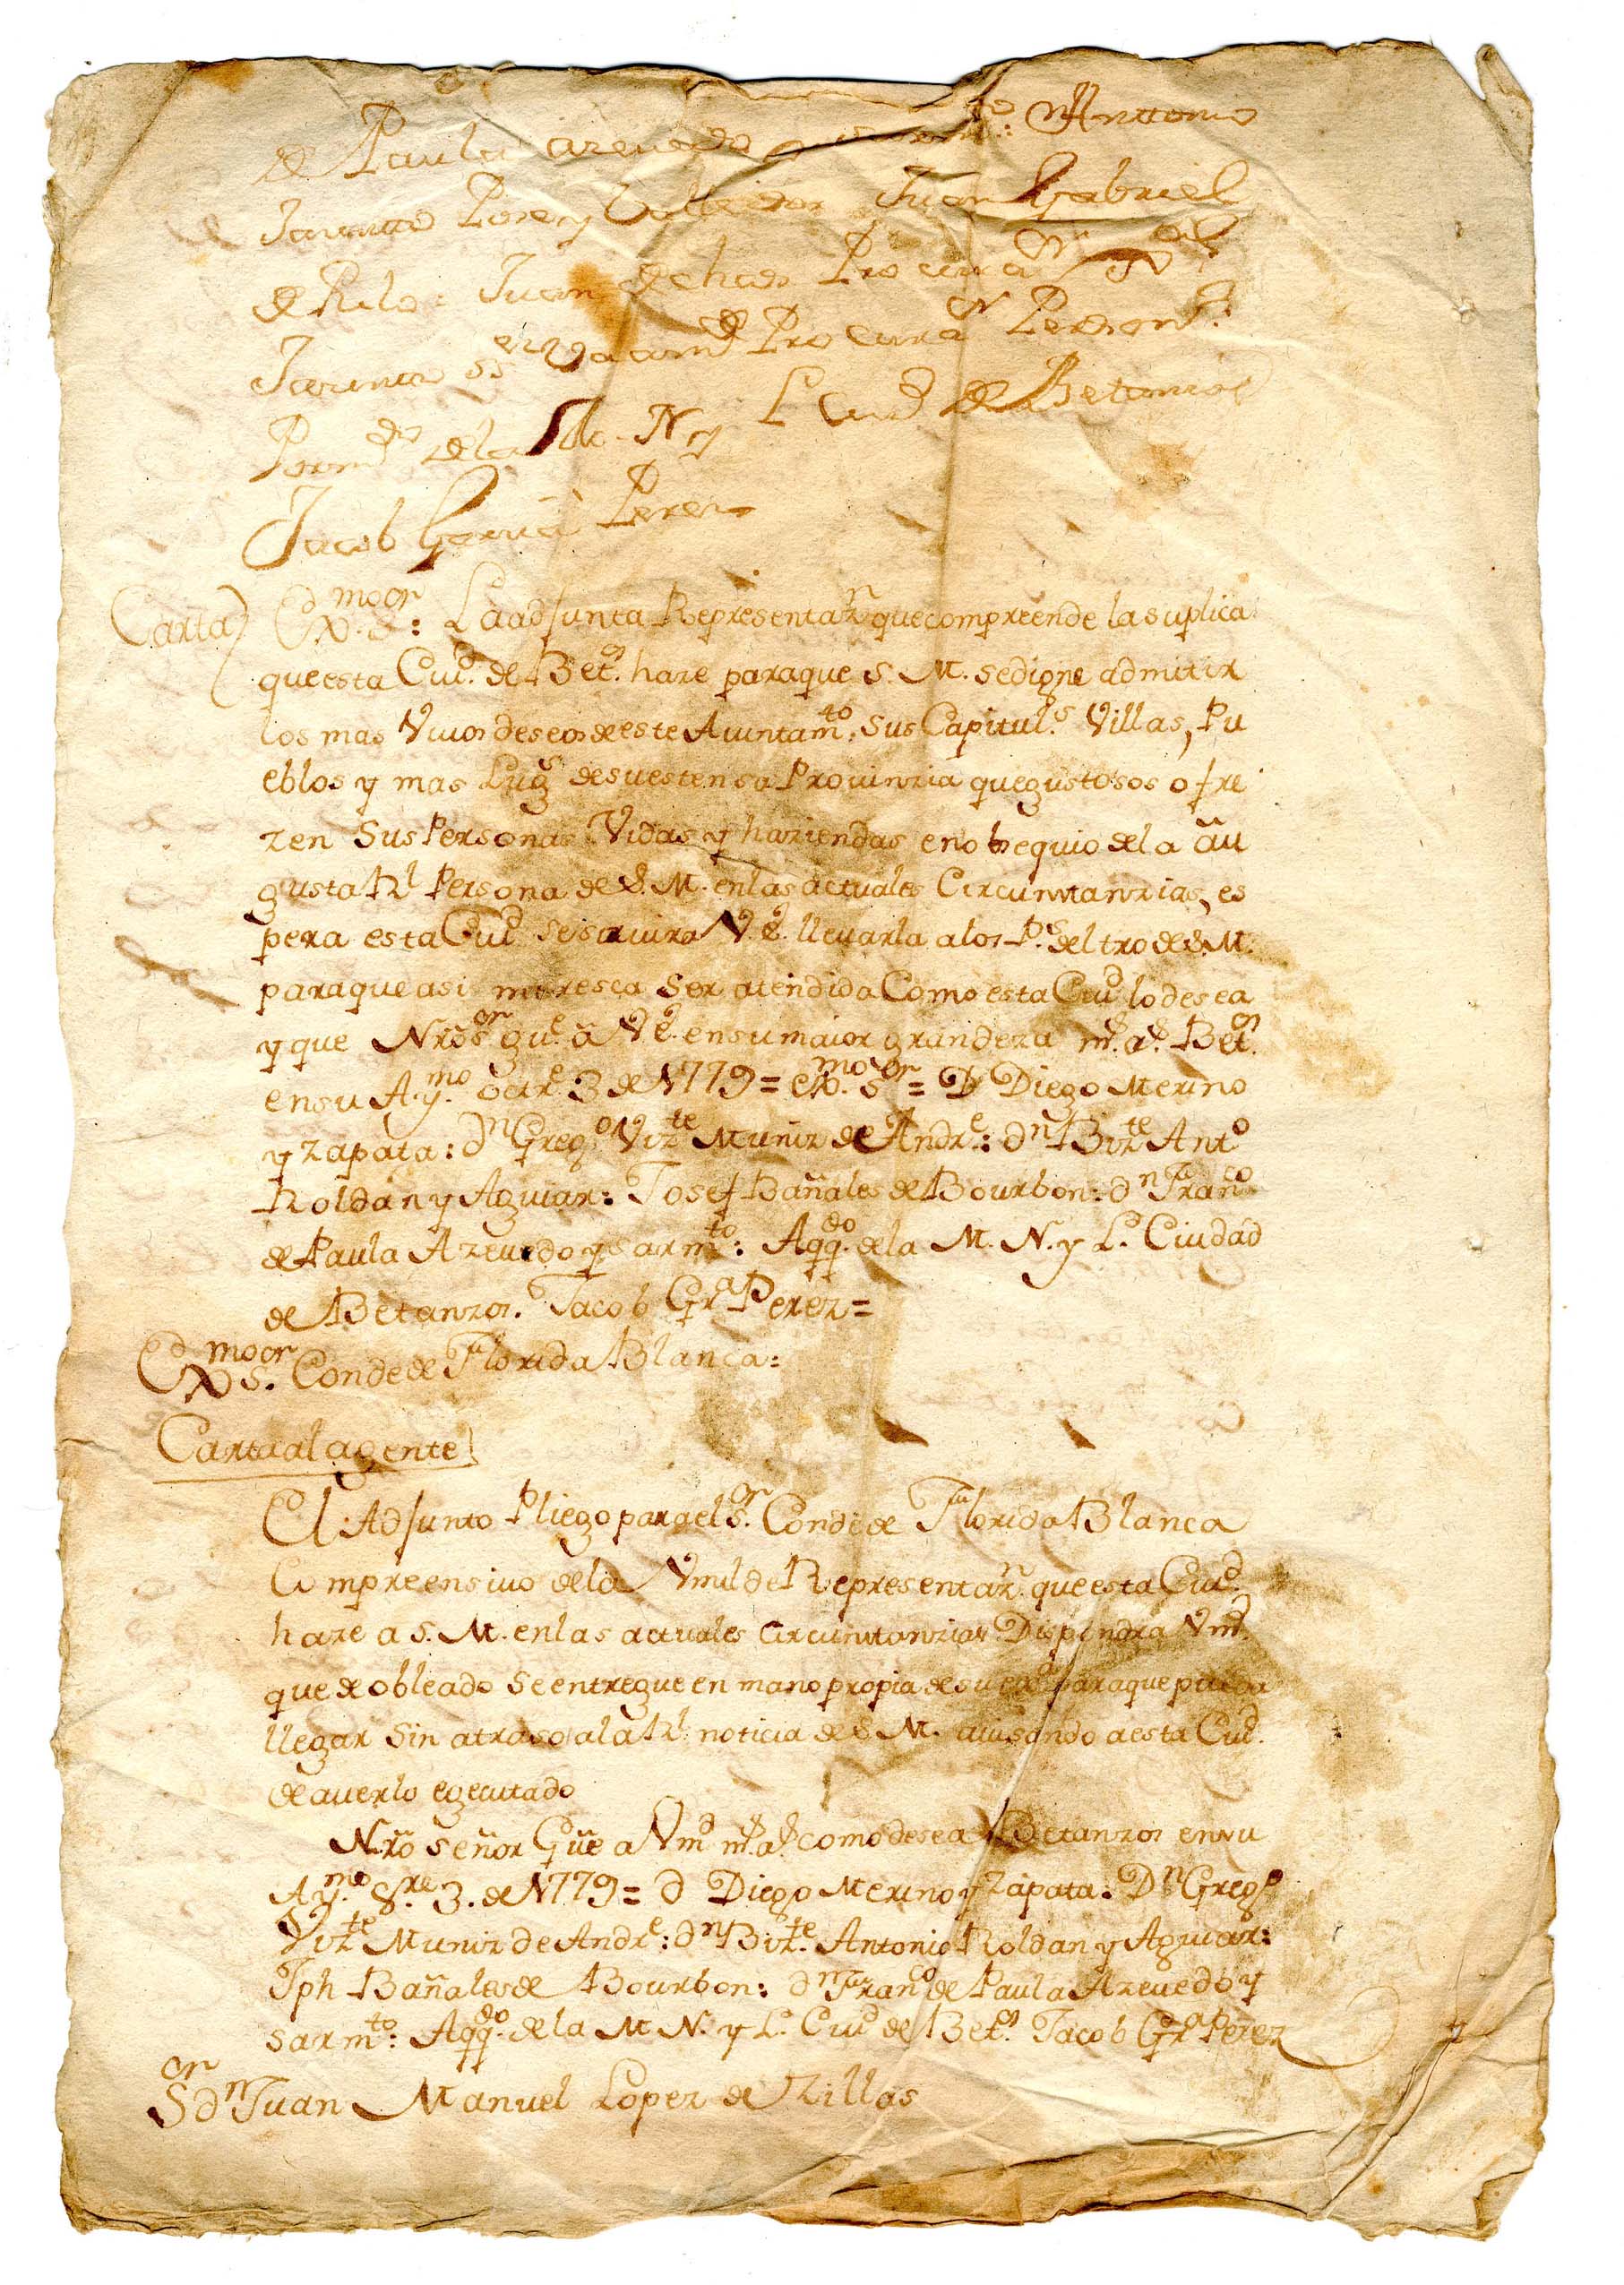 de Paula azevedo y Antonio
Jacinto Pose y Juan Gabriel
de Rilo: Juan Procurar
Procurar Person
dela N y L Ciud de Betanzos
Jacob Garcia Perez
Carta) Exmo Sor: La adjunta Representazn que compreende la suplica
que esta Ciud. de Betos. haze para que S. M. se digne admitir
los mas Vivos deseos de este Aiuntamto. sus Capituls. Villas, Pu
eblos y mas Lugs de su estensa Provinzia que gustosos ofre
zen sus Personas Vidas y haziendas en obsequio de la au
gusta Rl Persona de S. M. en las actuales Circunstanzias, es
pera esta Ciud se servira V. E. llevarla a los Ps. del tro de S. M.
para que asi meresca ser atendida Como esta Ciud lo desea
y que Nro Sor gue. a V E. en su maior grandeza ms. as. Betos.
en su Ay.mo octre 3 de 1779 = Exmo. Sor = D Diego Merino
y zapata: dn Grego Vizte Muñiz de Andre: dn Bizte Anto
Roldan y Aguiar: Josef Bañales de Bourbon: dn Franco
de Paula Azevedo y sarmto: Aqqdo. de la M. N. y L. Ciudad
de Betanzos. Jacob Gra Perez =
Exmo Sor. Conde de Florida Blanca:
Carta al agente
El Adjunto Pliego para el Sor. Conde de Florida Blanca
Compreensivo de la Vmilde Representazn. que esta Ciud.
haze a S. M. en las actuales Circunstanzias Dispondra Vmd.
que obleado se entregue en mano propia de su exa. para que pueda
llegar sin atraso a la Rl. noticia de S. M. avisando a esta Ciud.
de averlo egecutado
Nro señor Gue a Vmd ms. as. como desea Betanzos en su
Ay.mo 8re 3. de 1779 = d Diego Merino y Zapata: Dn Grego
Vizte Muniz de Andre: dn Bizte. Antonio Roldan y Aguiar:
Jph Bañales de Bourbon: dn Franco de Paula Azevedo y
sarmto: Aqqdo. de la M N. y L. Ciud de Betos. Jacob Gra Perez
Sor dn Juan Manuel Lopez de Zillas